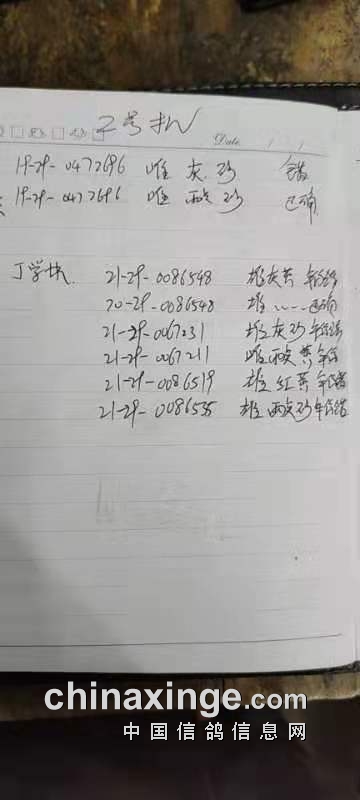 2号
Date
19-29-0472696 雌 灰 砂 错
19-29-0472696 雌 雨点 砂 已确
丁学
21-29-0086548 雄灰黄
20-29-0086548 雄 已
21-29-0067231 雄灰砂
21-29-0067211 雌雨点黄
21-29-0086519 雄 红黄
21-29-0086535 雄 雨点砂
chinaxinge.com
中国信鸽信息网